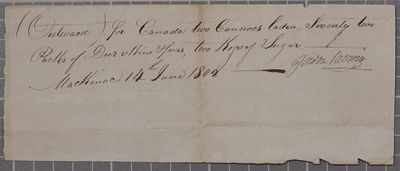 (Outward) for Canada two Cannoes laden Seventy two
Packs of Deer Skins & Furs, two Kegs of Sugar
Mackinac 14th June 1802